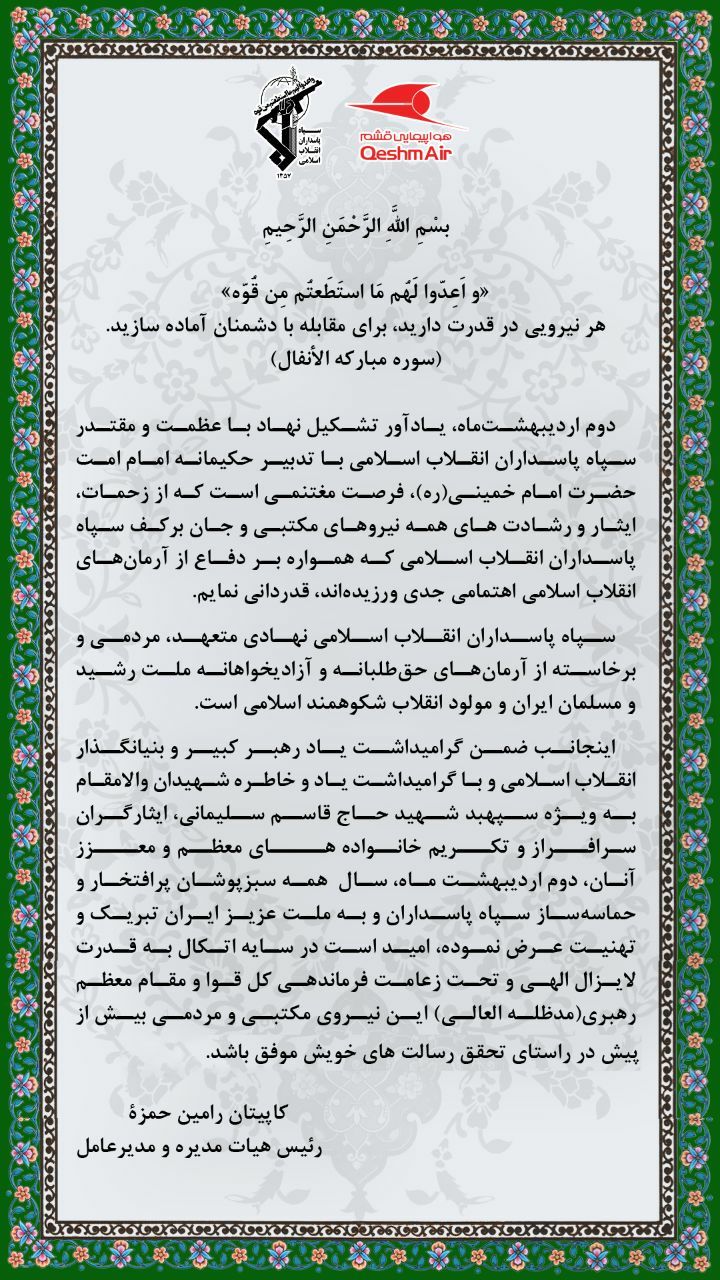 سپاه
پاسداران
انقلاب
اسلامی
۱۳۵۷
هواپیمایی قشم
QeshmAir
بِسْمِ اللَّهِ الرَّحْمَنِ الرَّحِیمِ
«و اَعِدّوا لَهُم مَا استَطَعتُم مِن قُوّه»
هر نیرویی در قدرت دارید، برای مقابله با دشمنان آماده سازید.
(سوره مبارکه الأنفال)
دوم اردیبهشت‌ماه، یادآور تشکیل نهاد با عظمت و مقتدر
سپاه پاسداران انقلاب اسلامی با تدبیر حکیمانه امام امت
حضرت امام خمینی(ره)، فرصت مغتنمی است که از زحمات،
ایثار و رشادت های همه نیروهای مکتبی و جان برکف سپاه
پاسداران انقلاب اسلامی که همواره بر دفاع از آرمان‌های
انقلاب اسلامی اهتمامی جدی ورزیده‌اند، قدردانی نمایم.
سپاه پاسداران انقلاب اسلامی نهادی متعهد، مردمی و
برخاسته از آرمان‌های حق‌طلبانه و آزادیخواهانه ملت رشید
و مسلمان ایران و مولود انقلاب شکوهمند اسلامی است.
اینجانب ضمن گرامیداشت یاد رهبر کبیر و بنیانگذار
انقلاب اسلامی و با گرامیداشت یاد و خاطره شهیدان والامقام
به ویژه سپهبد شهید حاج قاسم سلیمانی، ایثارگران
سرافراز و تکریم خانواده های معظم و معزز
آنان، دوم اردیبهشت ماه، سال همه سبزپوشان پرافتخار و
حماسه‌ساز سپاه پاسداران و به ملت عزیز ایران تبریک و
تهنیت عرض نموده، امید است در سایه اتکال به قدرت
لایزال الهی و تحت زعامت فرماندهی کل قوا و مقام معظم
رهبری(مدظله العالی) این نیروی مکتبی و مردمی بیش از
پیش در راستای تحقق رسالت های خویش موفق باشد.
کاپیتان رامین حمزۀ
رئیس هیات مدیره و مدیرعامل